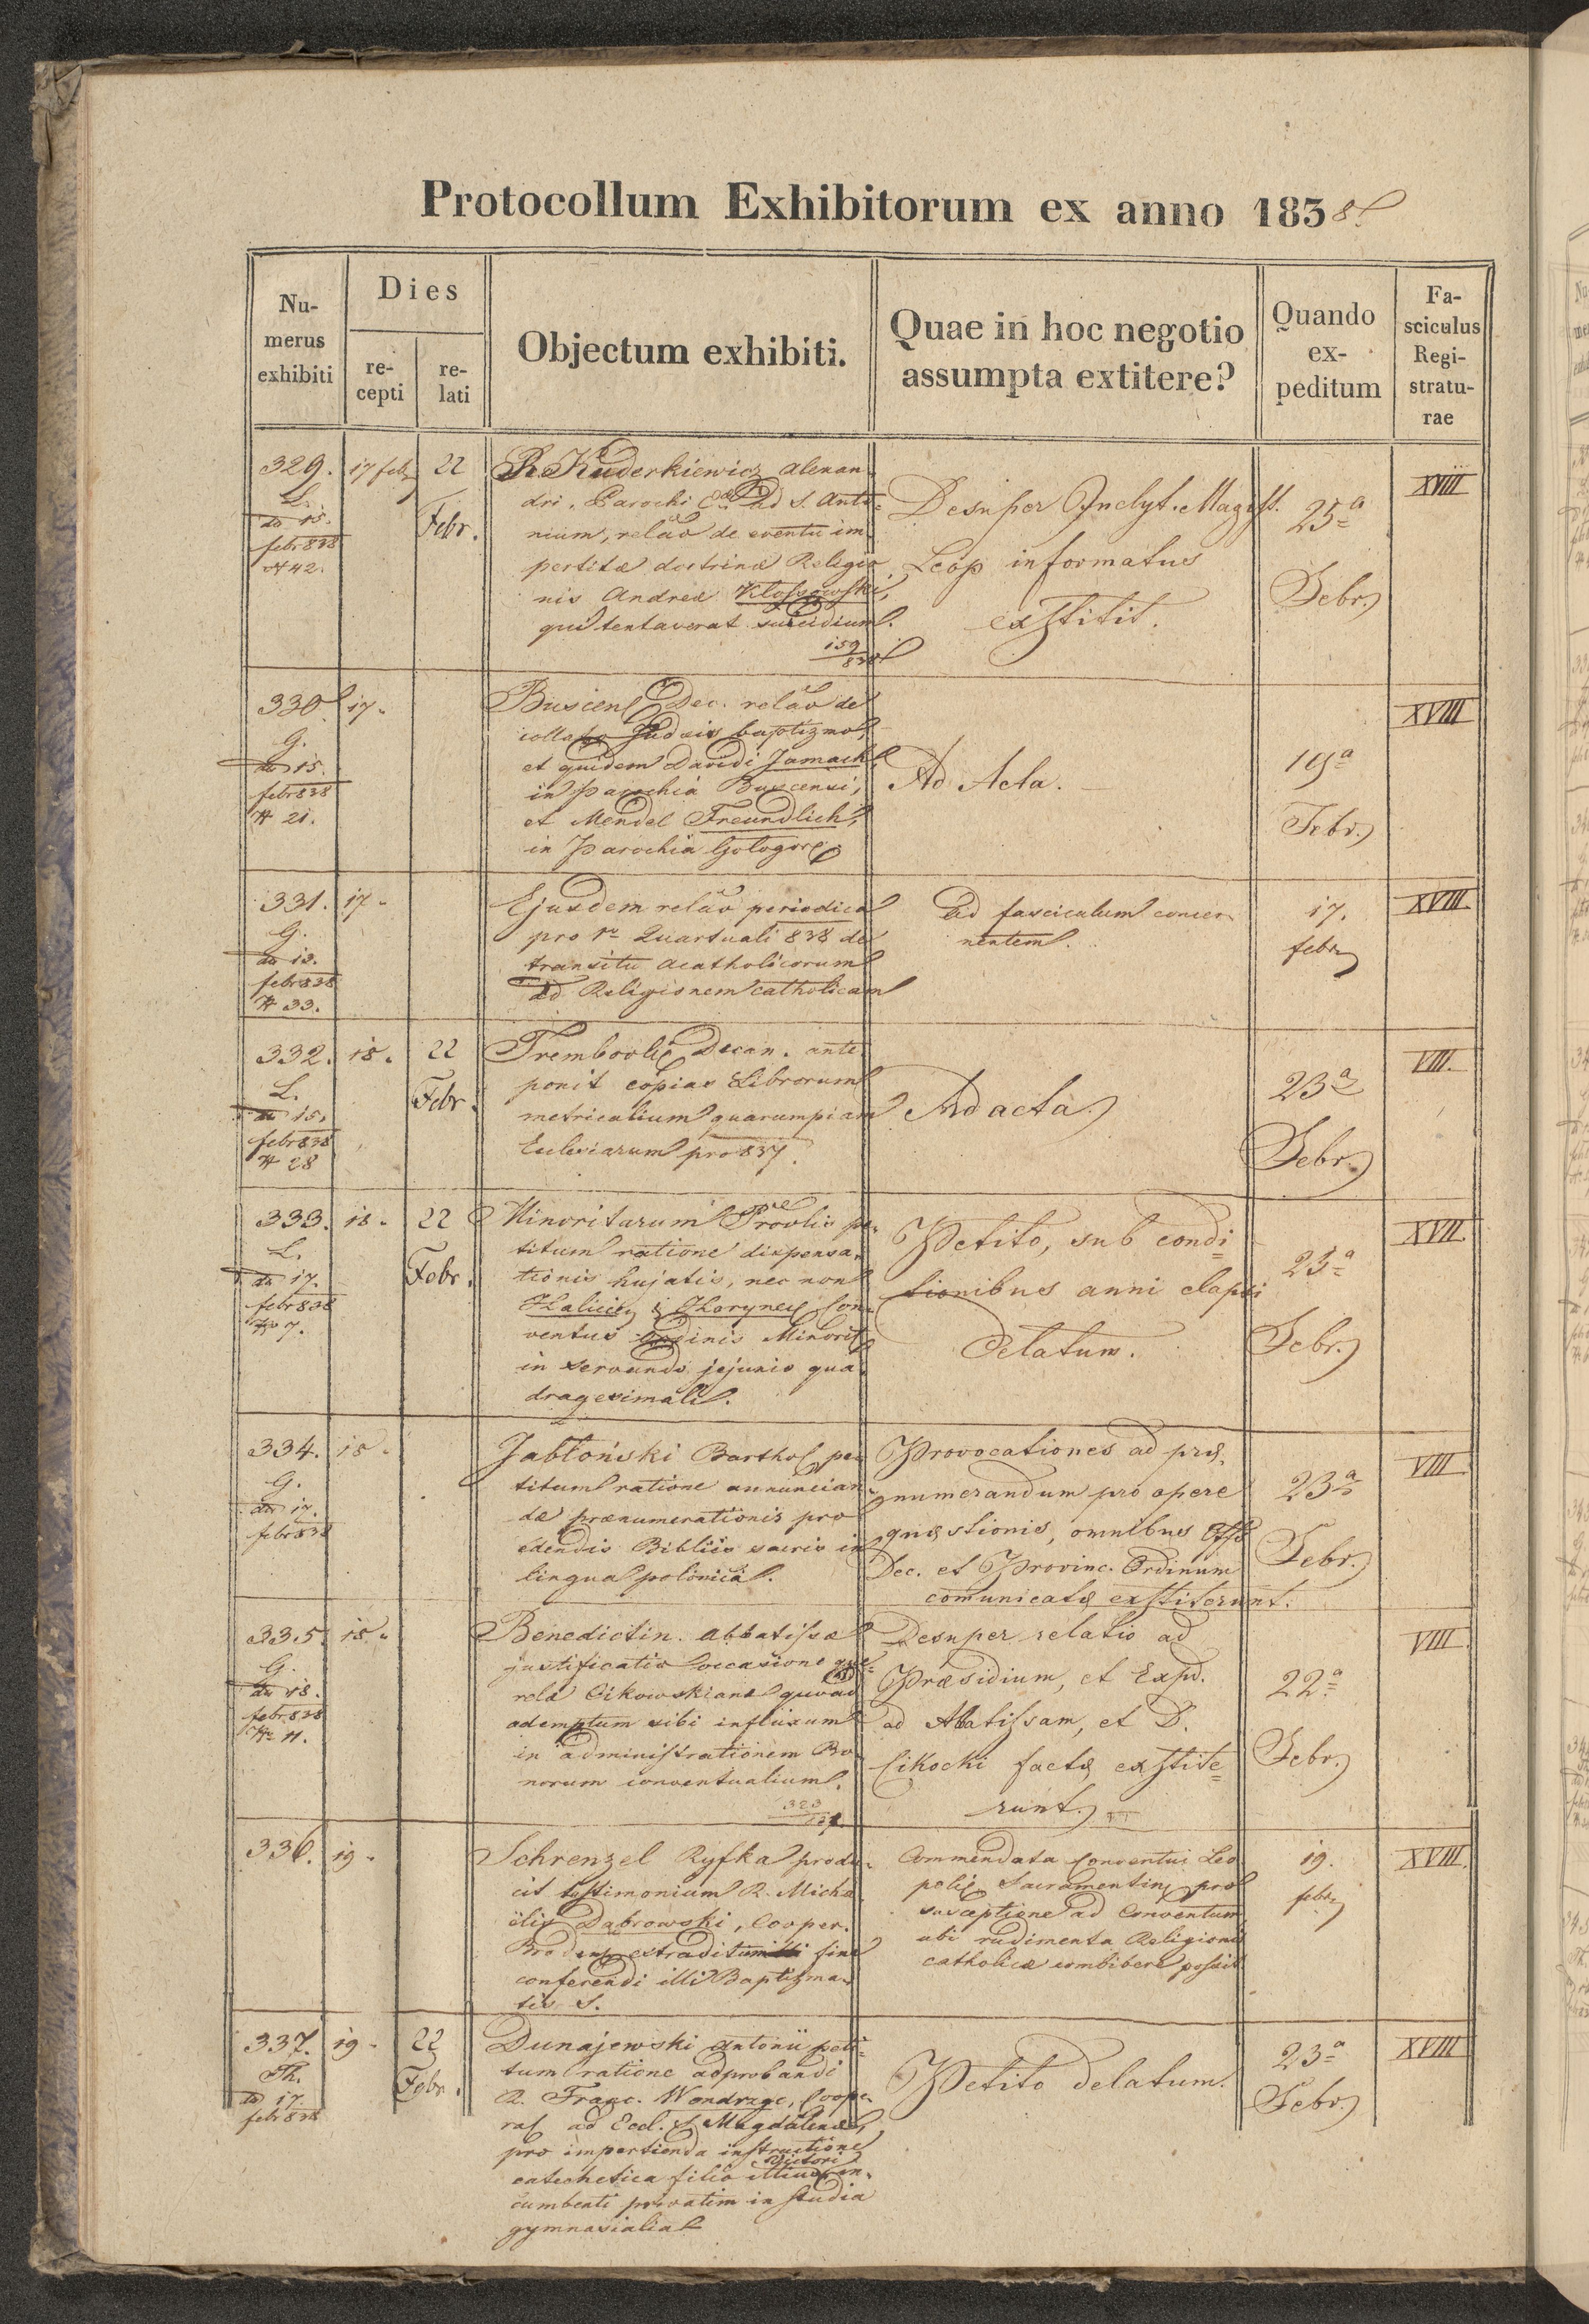 Protocollum Exhibitorum ex anno 1838.
Nu-
merus
exhibiti
Dies
re-
cepti
re-
lati
Objectum exhibiti.
Quae in hoc negotio
assumpta extitere?
Quando
ex-
peditum
Fa-
sciculus
Regi-
stratu-
rae
329.
L.
do 15.
febr 838
N 42.
17 febr
22
Febr.
R. Kuderkiewicz Alexan-
dri, Parochi ad S. Anto-
nium, relao de eventu im-
pertitæ doctrinæ Religio-
nis Andreæ Klossowski,
qui tentaverat suicidium.
159
838
Desuper Inclyt. Magist.
Leop informatus
exstitit.
25a
Febr.
XVIII
330
G.
do 15.
febr 838
N 21.
17.
Buscens Dec. relao de
collato Judæis baptizmo,
et quidem Davidi Jamack
in Parochia Buscensi,
et Mendel Freundlich,
in Parochia Gologore
Ad Acta.
19a
Febr.
XVIII
331.
G.
do 13.
febr 838
N 33.
17.
Ejusdem relao periodica
pro 1o Quartuali 838 de
transitu acatholicorum
ad Religionem catholicam
Ad fasciculum concer-
nentem.
17.
febr
XVIII.
332.
L.
do 15.
febr 838
N 28
18.
22
Febr.
Trembovlie Decan. ante-
ponit copias Librorum
metricalium quarumpiam
Ecclesiarum pro 837.
Ad acta
23a
Febr.
VIII.
333.
L.
do 17.
febr 838
No 7.
18.
22
Febr.
Minoritarum Provlis pe-
titum ratione dispensa-
tionis hujatis, nec non
Halicien & Horynec Con-
ventus Ordinis Minorit
in servando jejunio qua-
dragesimali.
Petito, sub condi-
tionibus anni elapsi
delatum.
23a
Febr.
XVII.
334.
G.
do 17.
febr 838
18.
Jabłoński Barthol pe-
titum ratione annuncian-
dæ prænumerationis pro
edendis Bibliis sacris in
lingua polonica.
Provocationes ad præ-
numerandum pro opere
quæstionis, omnibus Offo
Dec. et Provinc. Ordinum
comunicatæ exstiterunt.
23a
Febr.
VIII
335.
G.
do 18.
febr 838
No 11.
18.
Benedictin. Abbatissæ
justificatio occasione que-
relæ Cikowskianæ quoad
ademptum sibi influxum
in administrationem Bo-
norum conventualium.
323
Desuper relatio ad
Præsidium, et Exped.
ad Abatissam, et D.
Cikocki factæ exstite-
runt.
22a
Febr.
VIII
336.
19.
Schrenzel Ryfka produ-
cit testimonium R. Micha-
ëlis Dąbrowski, Cooper.
Brodens extraditum fine
conferendi illi Baptizma-
tis S.
Commendata Conventui Leo-
polie Sacramentine pro
susceptione ad Conventum,
ubi rudimenta Religionis
catholicæ combibere possit
19.
febr
XVIII.
337.
Th.
do 17.
febr 838
19.
22
Febr.
Dunajewski Antonii peti-
tum ratione adprobandi
R. Franc. Wondrzge, Coope-
rat ad Eccl. S. Magdalenæ,
pro impertienda instructione
catechetica filio illius Victori in-
cumbenti privatim in studia
gymnasialia
Petito delatum.
23a
Febr.
XVIII